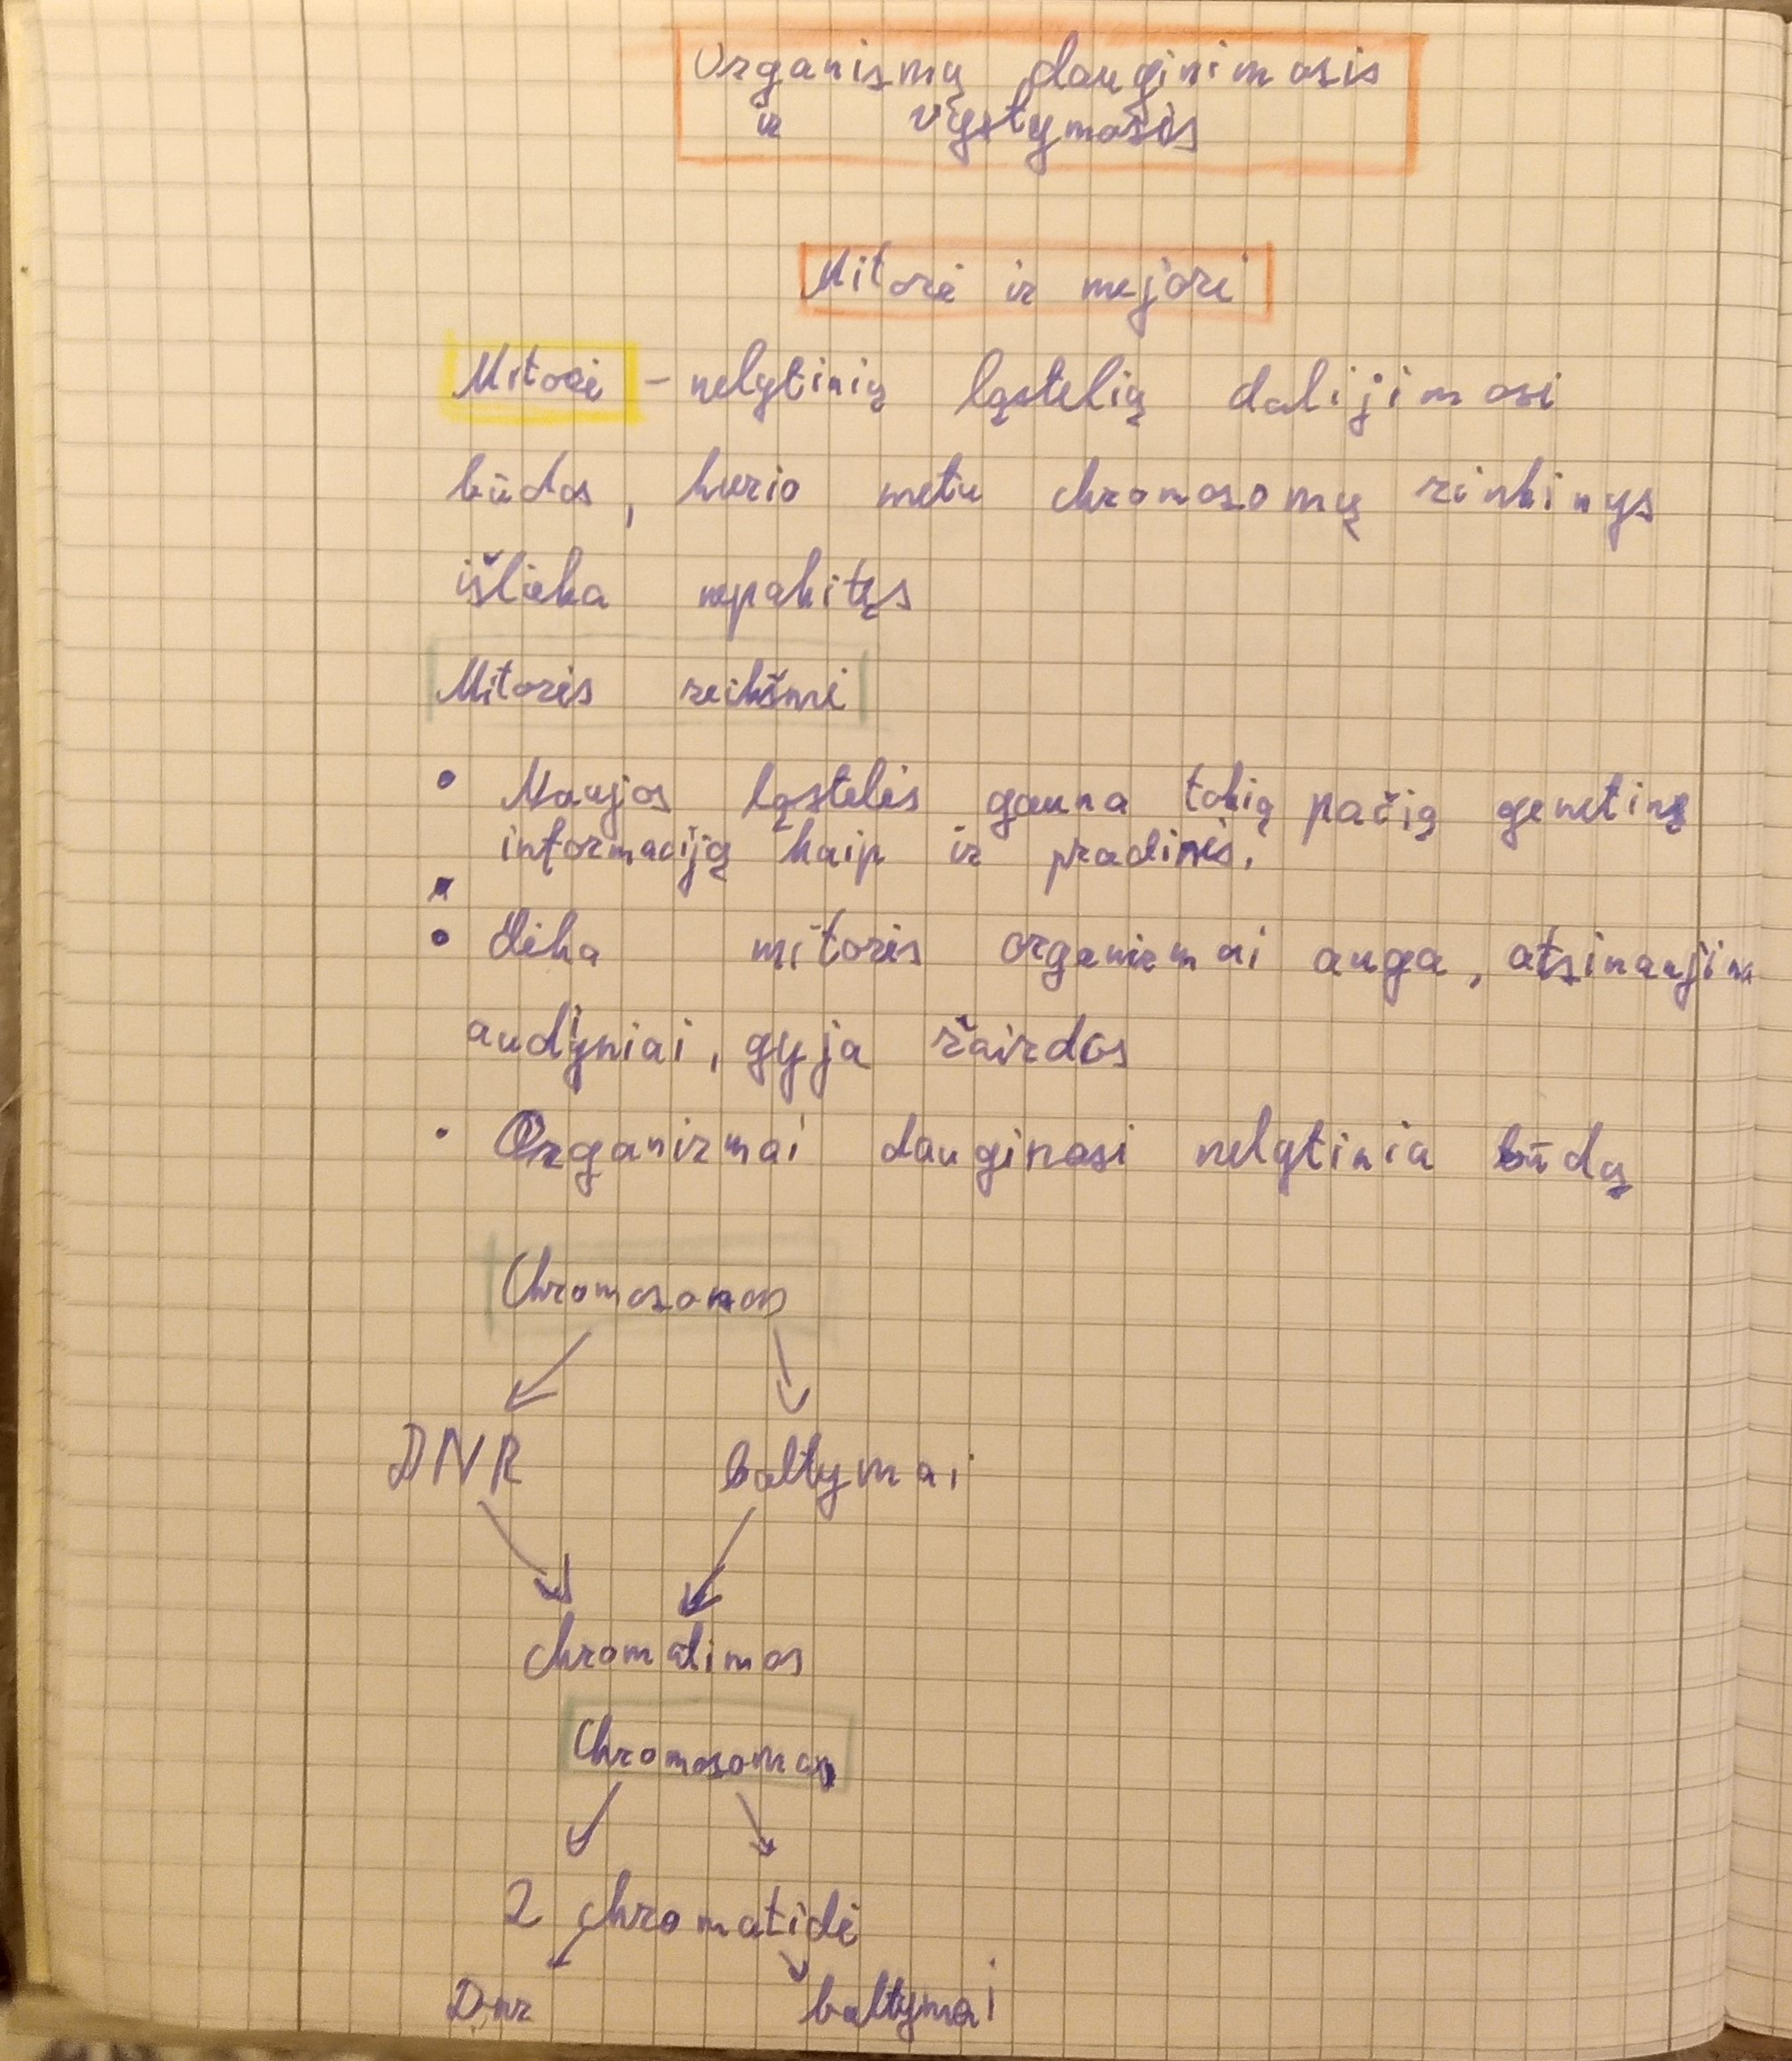 Organismų dauginimasis
ir vystymasis
Mitozė ir mejozė
Mitozė - nelytinių ląstelių dalijimosi
būdas, kurio metu chromosomų rinkinys
išlieka nepakitęs
Mitozės reikšmė
• Naujos ląstelės gauna tokią pačią genetinę
informaciją kaip ir pradinės.
•
• dėka mitozės organizmai auga, atsinaujina
audiniai, gyja žaizdos
• Organizmai dauginasi nelytiniu būdą
Chromosomos
DNR baltymai
chromatimas
Chromosomos
2 chromatidė
Dnr baltymai